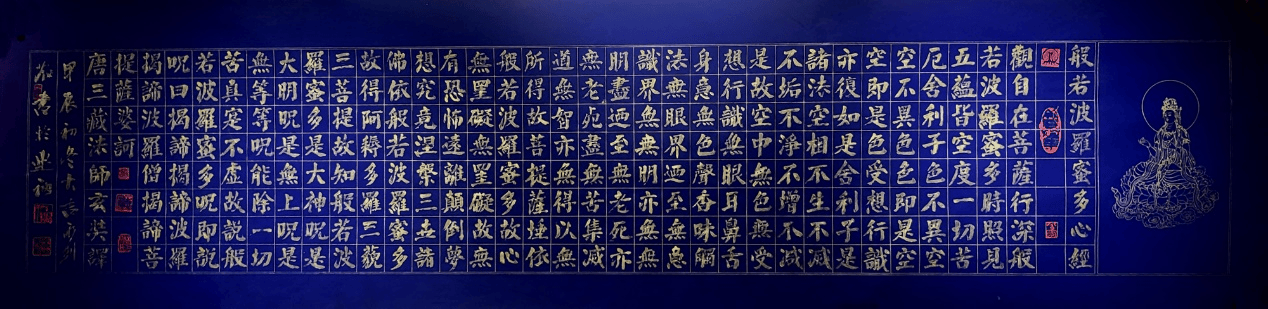 般若波羅蜜多心經
觀自在菩薩行深般
若波羅蜜多時照見
五蘊皆空度一切苦
厄舍利子色不異空
空不異色色即是空
空即是色受想行識
亦復如是舍利子是
諸法空相不生不滅
不垢不淨不增不減
是故空中無色無受
想行識無眼耳鼻舌
身意無色聲香味觸
法無眼界迺至無意
識界無無明亦無無
明盡迺至無老死亦
無老死盡無苦集滅
道無智亦無得以無
所得故菩提薩埵依
般若波羅蜜多故心
無罣礙無罣礙故無
有恐怖遠離顛倒夢
想究竟涅槃三世諸
佛依般若波羅蜜多
故得阿耨多羅三藐
三菩提故知般若波
羅蜜多是大神呪是
大明呪是無上呪是
無等等呪能除一切
苦真實不虛故說般
若波羅蜜多呪即說
呪曰揭諦揭諦波羅
揭諦波羅僧揭諦菩
提薩婆訶
唐三藏法師玄奘譯
甲辰初冬
敬書於